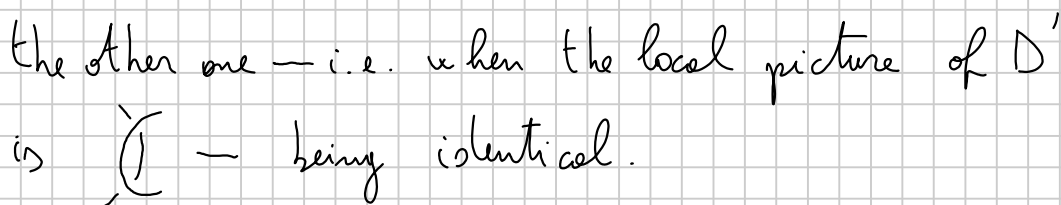 the other one — i.e. when the local picture of D'
is — being identical.